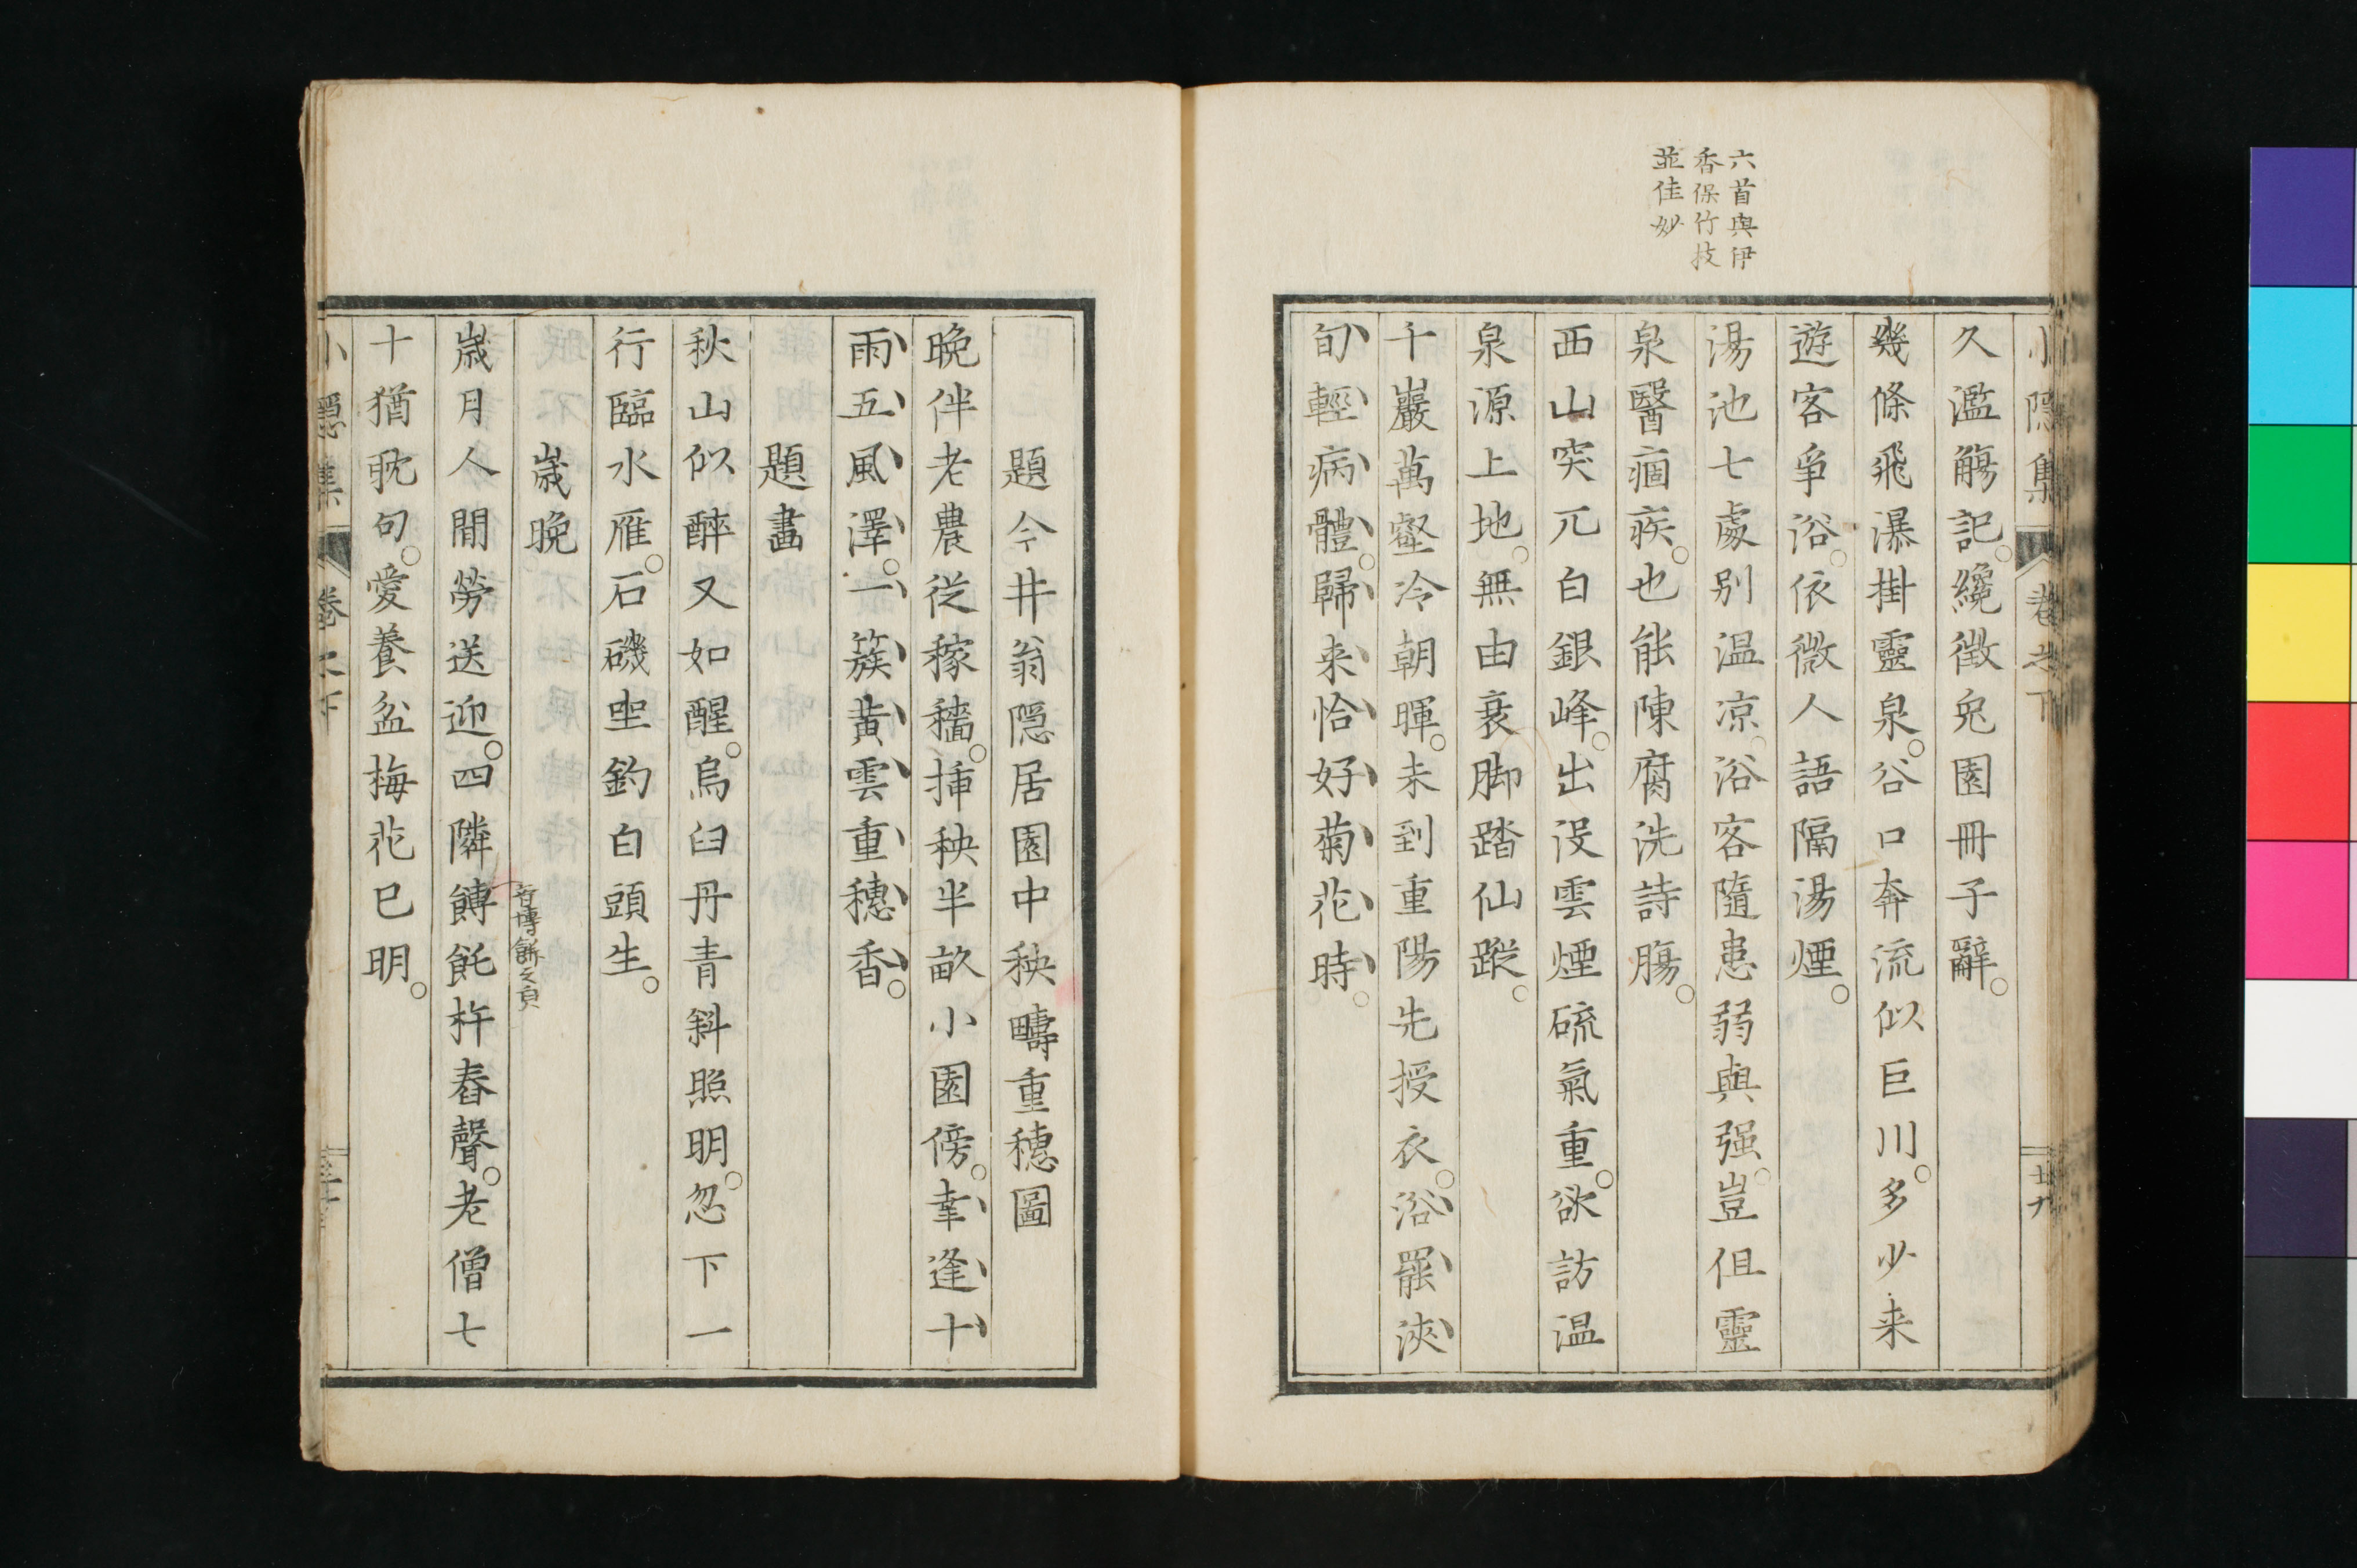 六首與伊
香保竹技
並佳妙
小隱集 卷之下 十九
久濫觴記。纔徴兎園冊子辭。
幾條飛瀑掛靈泉。谷口奔流似巨川。多少来
遊客爭浴。依微人語隔湯煙。
湯池七處别温凉。浴客隨患弱與强。豈但靈
泉醫痼疾。也能陳腐洗詩膓。
西山突兀白銀峰。出没雲煙硫氣重。欲訪温
泉源上地。無由衰脚踏仙蹤。
千巖萬壑冷朝暉。未到重陽先授衣。浴罷浹
旬輕病體。歸来恰好菊花時。
題今井翁隱居園中秧疇重穗圖
晩伴老農從稼穡。挿秧半畝小園傍。幸逢十
雨五風澤。一簇黄雲重穗香。
題畫
秋山似醉又如醒。烏臼丹青斜照明。忽下一
行臨水雁。石磯坐釣白頭生。
歳晩
歳月人間勞送迎。四隣餺飥杵舂聲。老僧七
十猶耽句。愛養盆梅花已明。
小隱集 卷之下